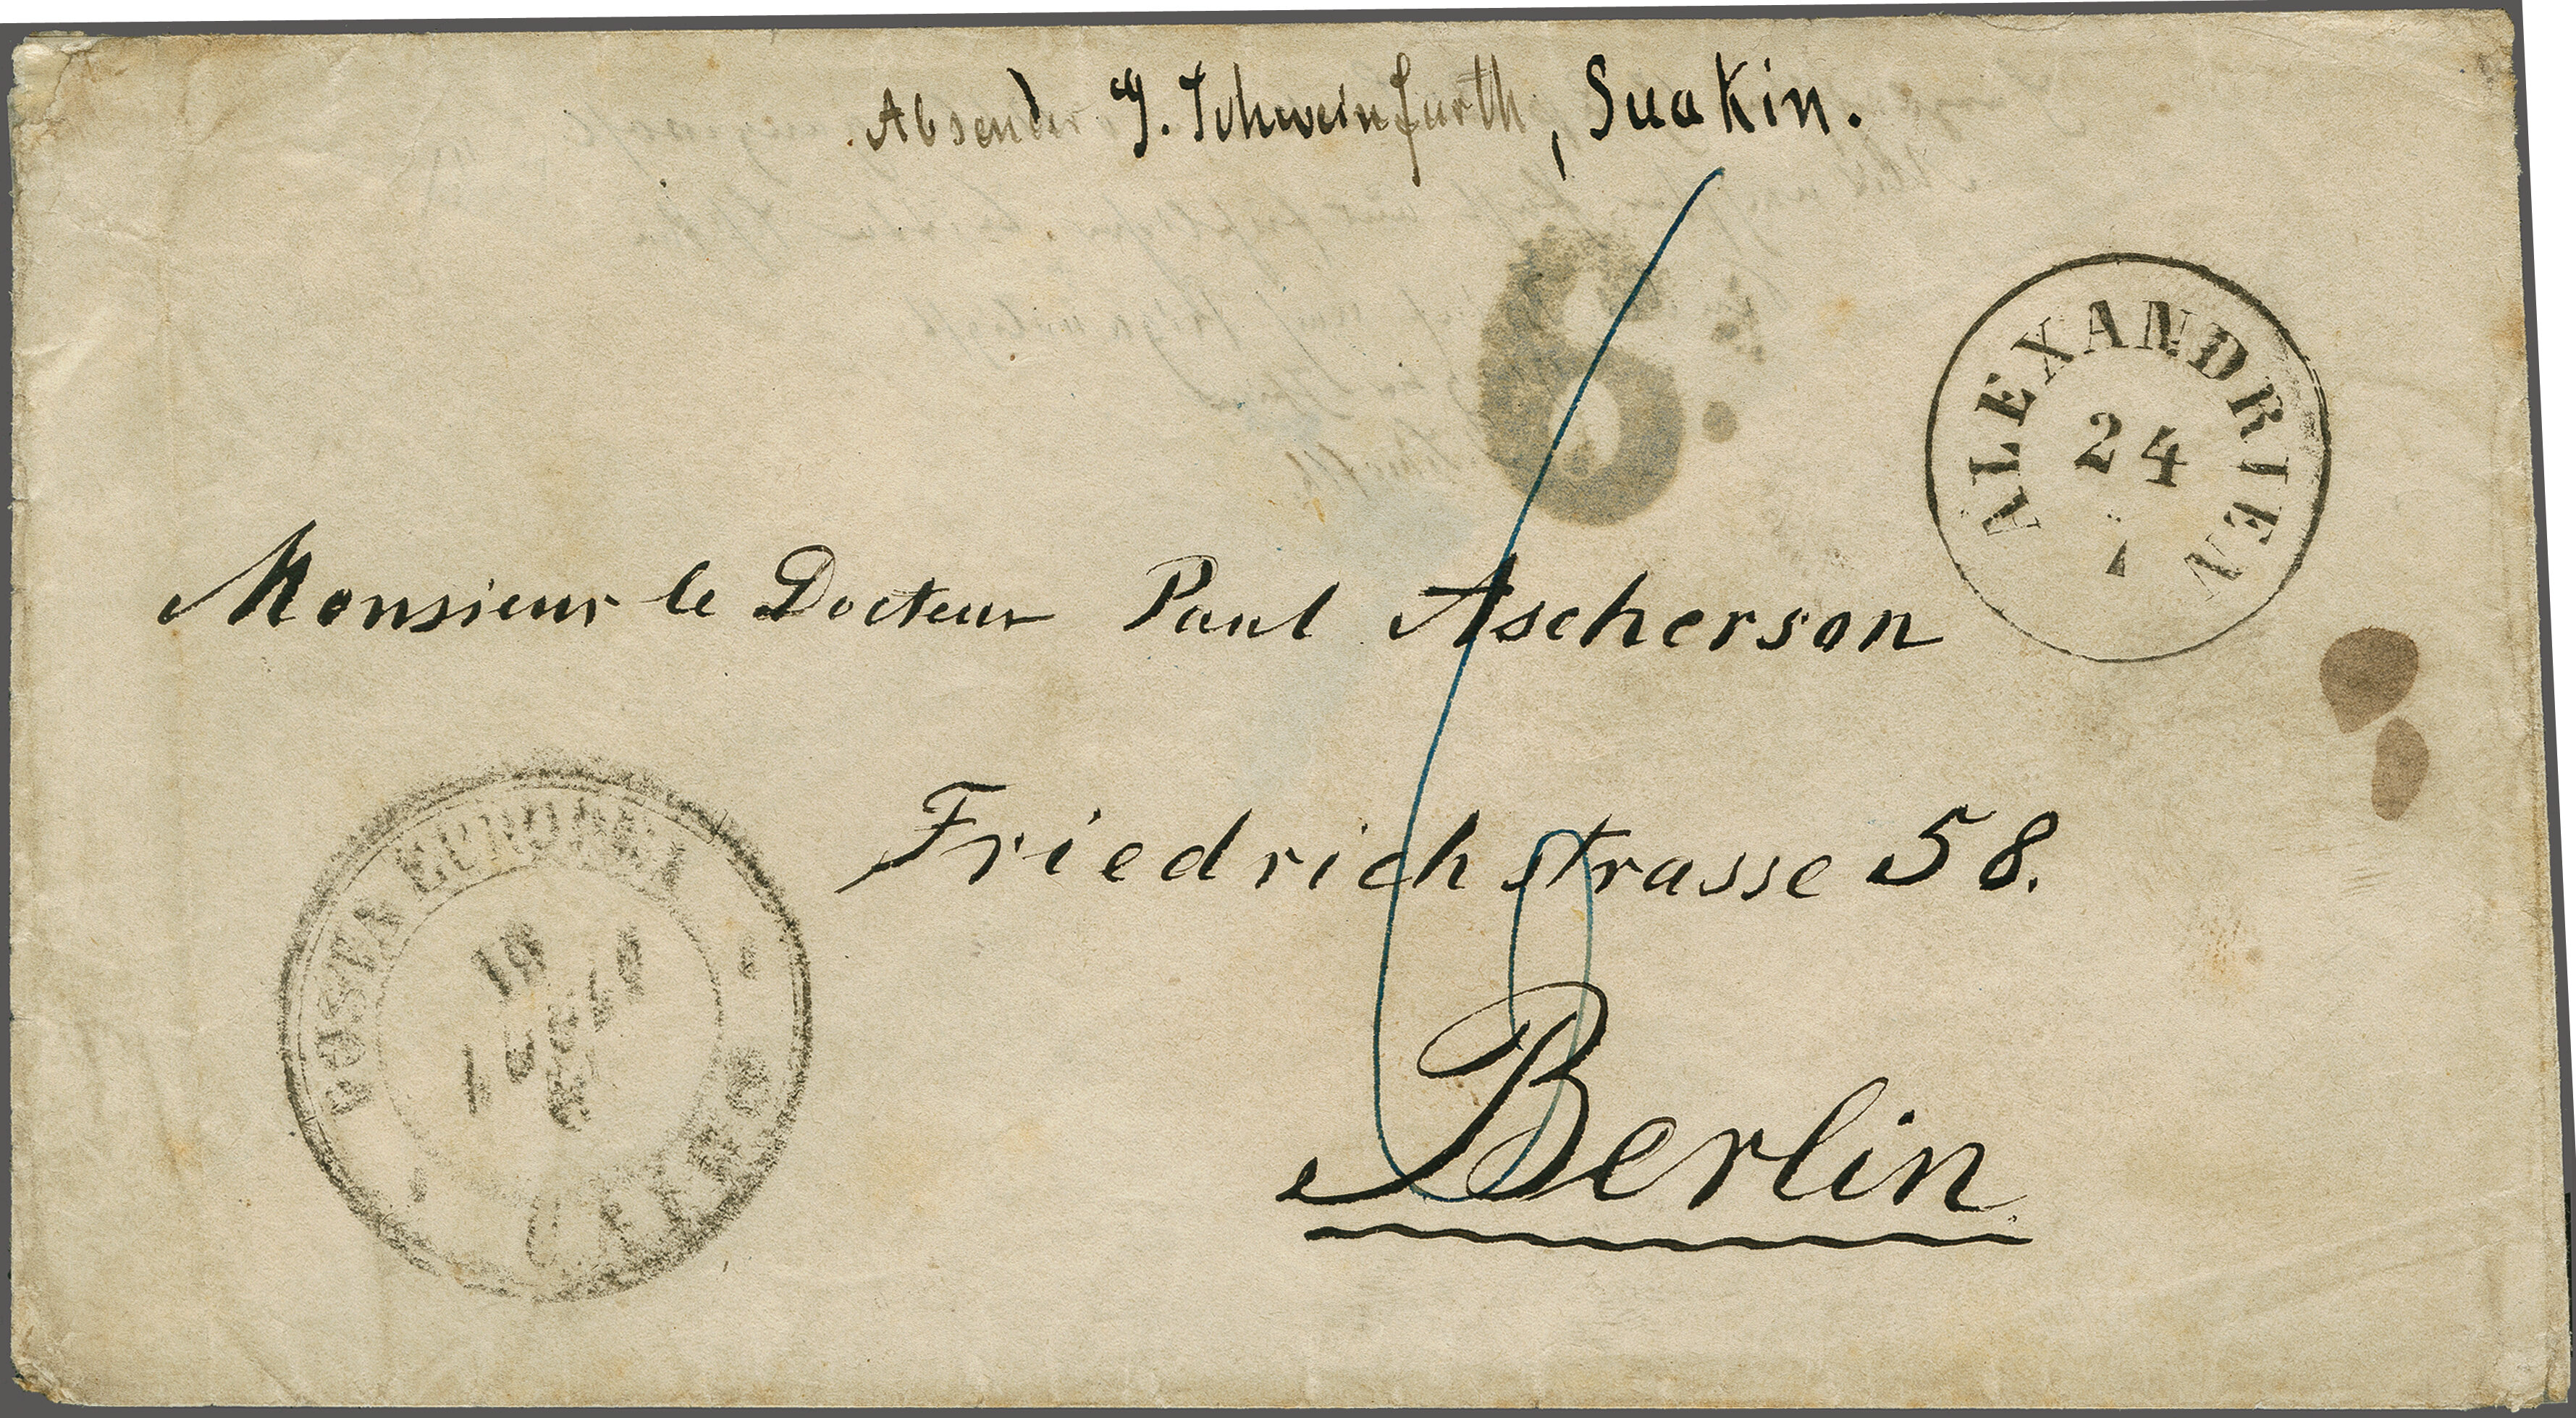 Absender G. Schweinfurth, Suakin.
6
ALEXANDRIEN
24
7
Monsieur le Docteur Paul Ascherson
Friedrichstrasse 58.
Berlin
POSTA EUROPEA
19
CAIRO